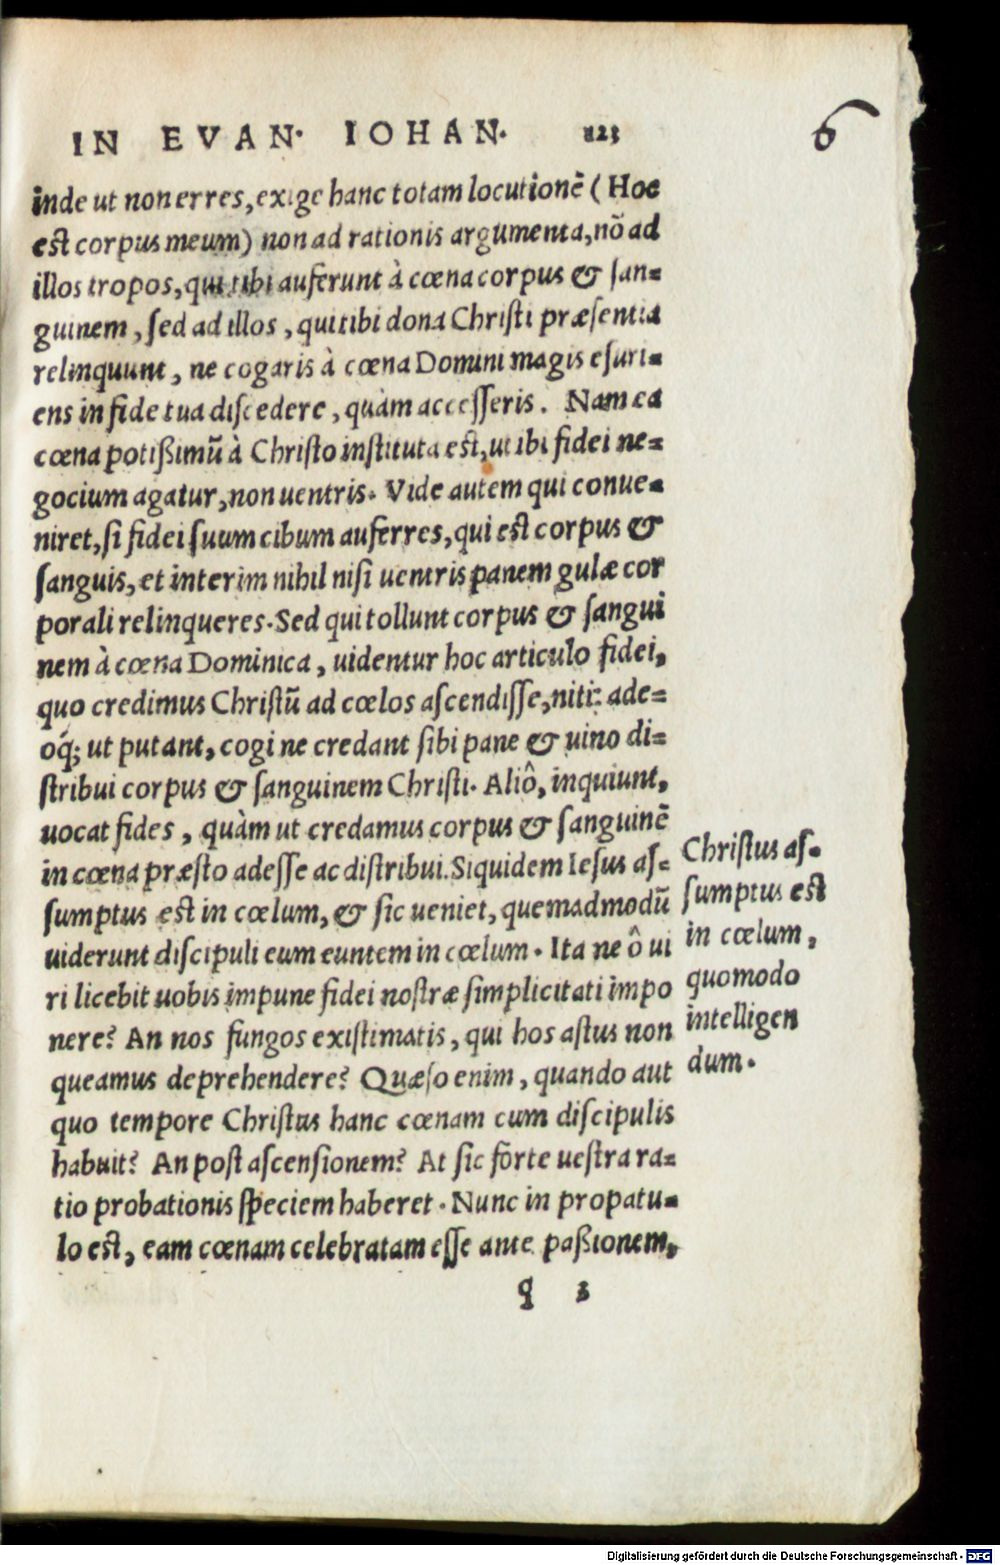 IN EVAN. IOHAN. 123
6
inde ut non erres, exige hanc totam locutionē (Hoc
est corpus meum) non ad rationis argumenta, nō ad
illos tropos, qui tibi auferunt à cœna corpus & ſan-
guinem, ſed ad illos, qui tibi dona Chriſti præſentia
relinquunt, ne cogaris à cœna Domini magis eſuri-
ens in fide tua diſcedere, quàm acceſſeris. Nam ea
cœna potißimū à Chriſto inſtituta eſt, ut ibi fidei ne-
gocium agatur, non uentris. Vide autem qui conue-
niret, ſi fidei ſuum cibum auferres, qui eſt corpus &
ſanguis, et interim nihil niſi uentris panem gulæ cor
porali relinqueres. Sed qui tollunt corpus & ſangui
nem à cœna Dominica, uidentur hoc articulo fidei,
quo credimus Chriſtū ad cœlos aſcendiſſe, niti: ade-
óq; ut putant, cogi ne credant ſibi pane & uino di-
ſtribui corpus & ſanguinem Chriſti. Aliô, inquiunt,
uocat fides, quàm ut credamus corpus & ſanguinē
in cœna præſto adeſſe ac diſtribui. Siquidem Ieſus aſ-
ſumptus eſt in cœlum, & ſic ueniet, quemadmodū
uiderunt diſcipuli eum euntem in cœlum. Ita ne ô ui
ri licebit uobis impune fidei noſtræ ſimplicitati impo
nere? An nos fungos exiſtimatis, qui hos aſtus non
queamus deprehendere? Quæſo enim, quando aut
quo tempore Chriſtus hanc cœnam cum diſcipulis
habuit? An poſt aſcenſionem? At ſic fōrte ueſtra ra-
tio probationis ſpeciem haberet. Nunc in propatu-
lo eſt, eam cœnam celebratam eſſe ante paßionem,
q 3
Chriſtus aſ-
ſumptus eſt
in cœlum,
quomodo
intelligen
dum.
Digitalisierung gefördert durch die Deutsche Forschungsgemeinschaft - DFG